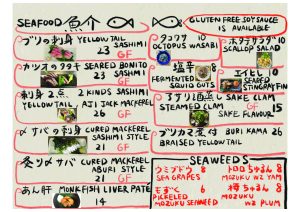 SEAFOOD 魚介
GLUTEN FREE SOY SAUCE
IS AVAILABLE
ブリの刺身 YELLOW TAIL
23 SASHIMI
GF
カツオのタタキ SEARED BONITO
23 SASHIMI
刺身2点 2 KINDS SASHIMI
YELLOW TAIL AJI JACK MACKEREL
26 GF
〆サバの刺身 CURED MACKEREL
SASHIMI STYLE
21 GF
炙り〆サバ CURED MACKEREL
ABURI STYLE
21 GF
あん肝 MONKFISH LIVER PATE
14
タコワサ 10
OCTOPUS WASABI
ホタテサラダ 10
SCALLOP SALAD
塩辛 8
FERMENTED
SQUID GUTS
エイヒレ 10
SEARED
STINGRAY FIN
アサリ酒蒸し SAKE CLAM
STEAMED CLAM GF
SAKE FLAVOUR 15
ブリカマ煮付 BURI KAMA 26
BRAISED YELLOW TAIL
SEAWEEDS
ウミブドウ 8
SEA GRAPES
トロロちゃん 8
MOZUKU WZ YAM
もずく 6
PICKELED
MOZUKU SEAWEED
梅ちゃん 8
MOZUKU
WZ PLUM